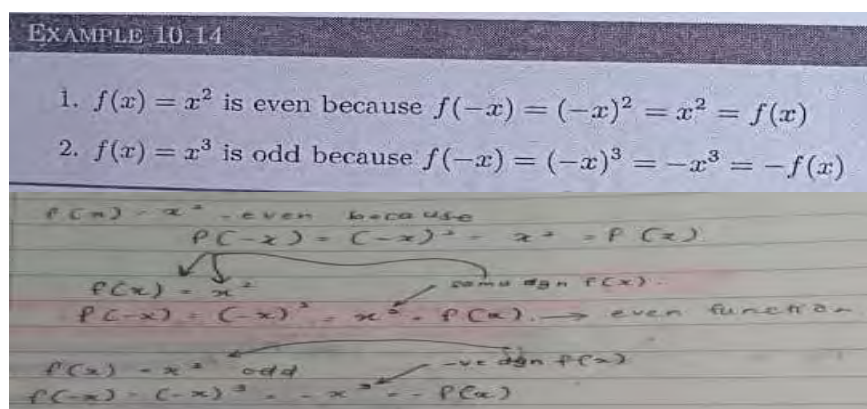 EXAMPLE 10.14
1. f(x) = x² is even because f(−x) = (−x)² = x² = f(x)
2. f(x) = x³ is odd because f(−x) = (−x)³ = −x³ = −f(x)
f(x) = x² - even because
f(-x) = (-x)² = x² = f(x)
f(x) = x²
same sgn f(x).
f(-x) = (-x)² = x² = f(x). → even function
f(x) = x³ odd
-ve sgn f(x)
f(-x) = (-x)³ = -x³ = -f(x)